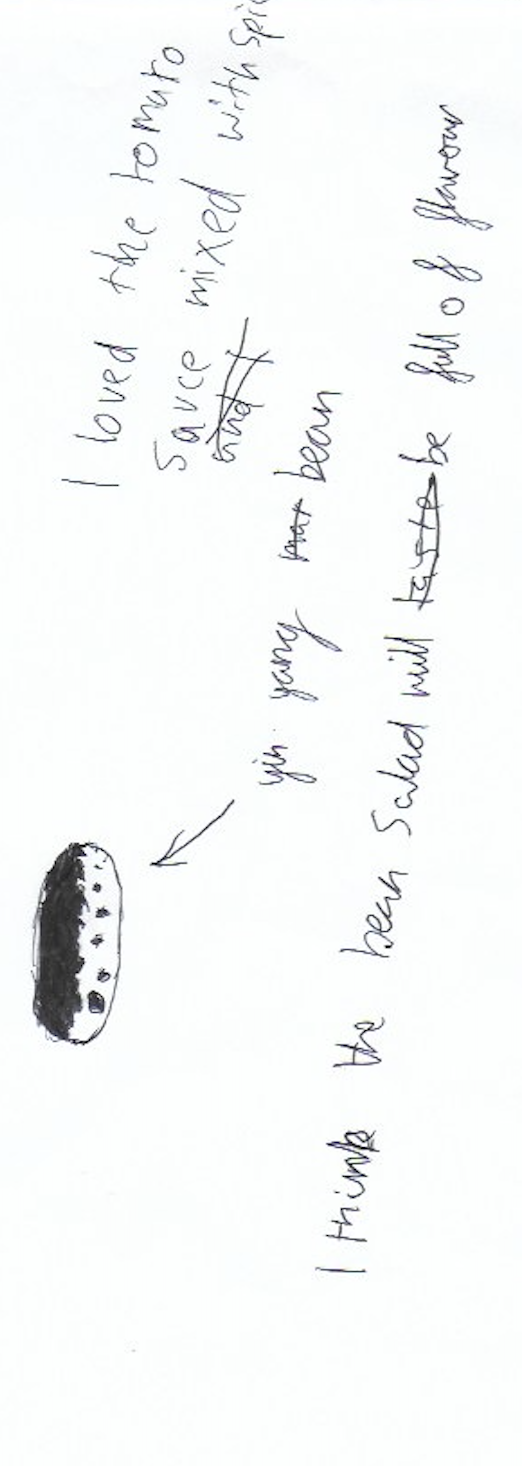 I loved the tomato
sauce mixed with spic
and
yin yang bean
I think the bean Salad will taste be full of flavour